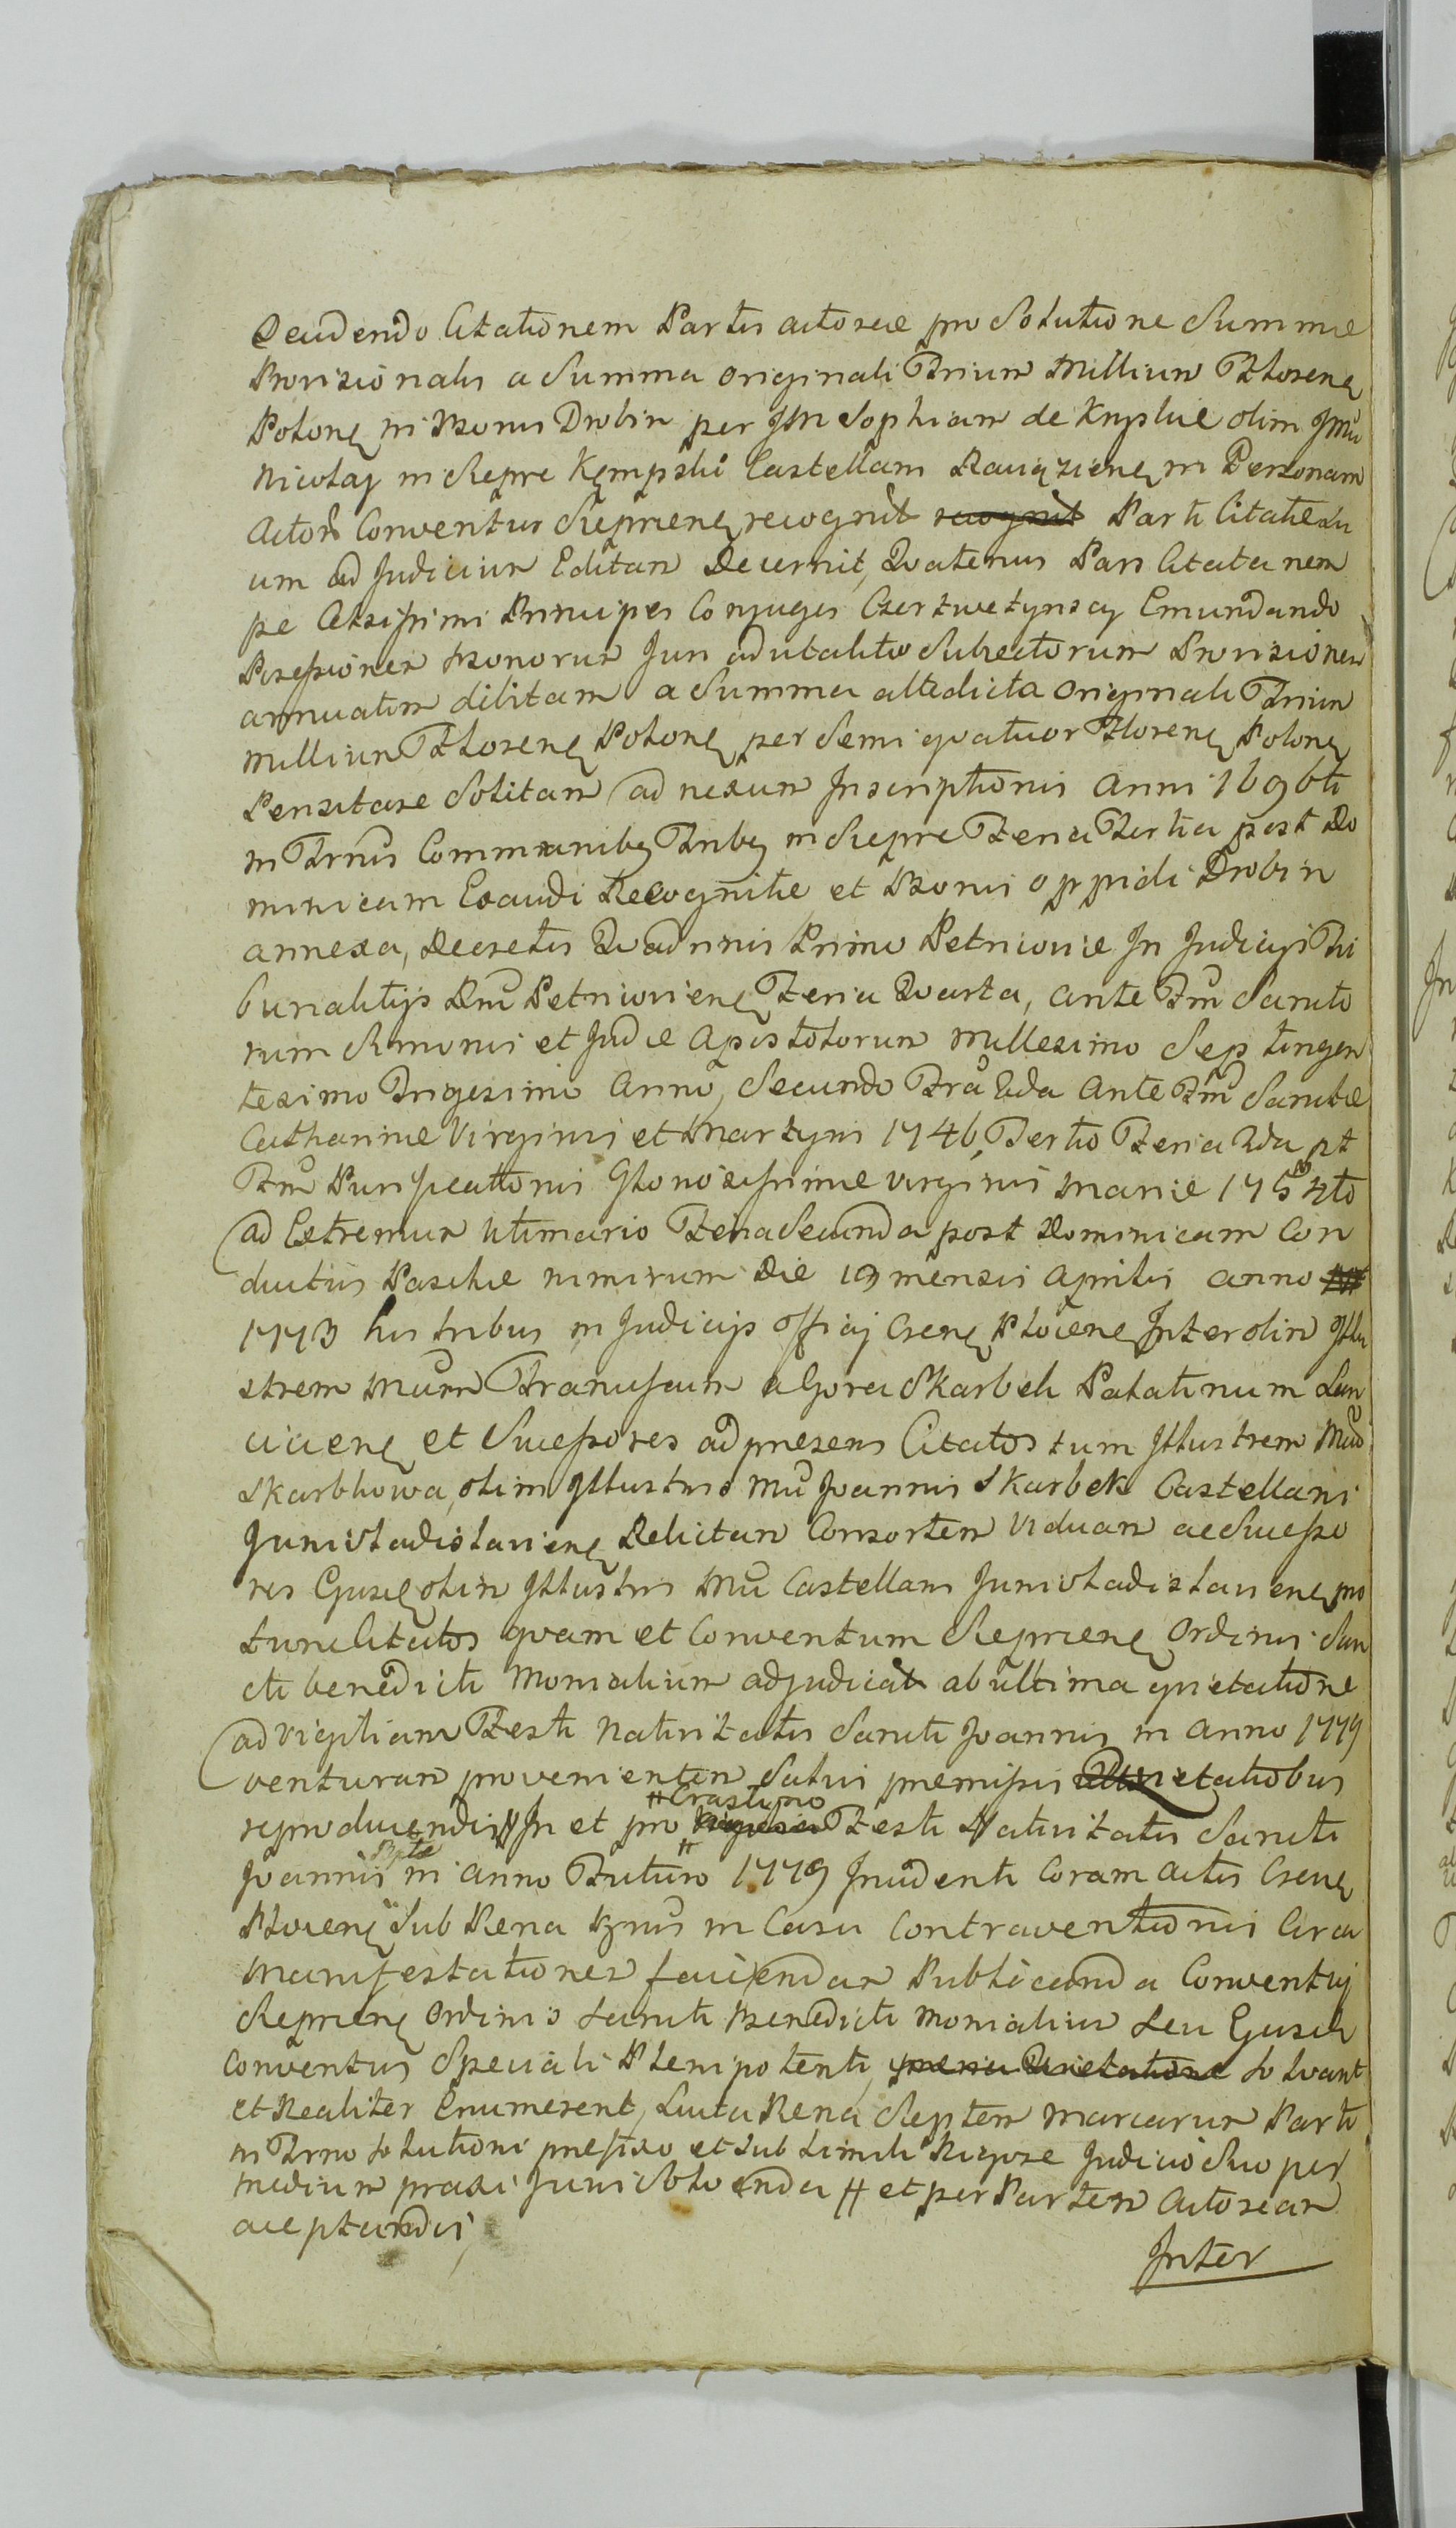 Deudendo Citationem Partis actoreæ pro Solutione Summæ
Provisionalis a Summa Originali Trium Millium Floreneɋ
Poloneɋ in Bonis Drobin per JM Sophiam de Kryskie olim JMu
Nicolaj in Siepre Kępmski Castellani Raciązieneɋ in Personam
Actorei Conventus Siepreneɋ recognit Parti Citatæ Su
um ad Judicium Editam Decernit, Quatenus Pars Citata nem
pe Celsissimi Principes Conjuges Czertwetynscy Emundando
Possessiones Bonorum Juri advitalitio Subiectorum Provisionem
annuatim debitam a Summa attedicta Originali Trium
Millium Floreneɋ Poloneɋ per Semi quatuor Floreneɋ Poloneɋ
Pensitare Solitam ad nexum Inscriptionis Anni 1696ti
in Trnis Communibɋ Tribɋ in Siepre Feria Tertia post Do
minicam Exaudi Recognitæ et Bonis oppidi Drobin
annexa, Decretis Quadrinis Primo Petricoviæ In Judicijs Tri
bunalitijs Rni Petricovieneɋ Feria Quarta, ante Ftm Sancto
rum Simonis et Judæ Apostolorum Millesimo Septingen
tesimo Trigesimo Anno, Secundo Fra 2da Ante Ftm Sanctæ
Catharinæ Virginis et Martyris 1746, Tertio Feria 2da pt
Ftm Purificationis Gloriosissimæ Virginis Mariæ 1753 4to
ad Extremum Ultimario Feria Secunda post Dominicam Con
ductus Paschæ nimirum Die 19 mensis Aprilis anno
1773 his tribus in Judicijs Officij Cseneɋ Plocieneɋ Inter olim Illu
strem Mgum Franciscum a Gora Skarbek Palatinum Lan
cicieneɋ et Successores ad præsens Citatos tum Illustrem Mudo
Skarbkowa, olim Illustris Mu Joannis Skarbek Castellani
Juniwladislavieneɋ Relictam Consortem Viduam ac Successo
res Ejuseɋ olim Illustris Mu Castellani Juniwladislavieneɋ pro
tunc Citatos quam et Conventum Siepreneɋ Ordinis San
cti benedicti Monialium adjudicat ab ultima quietatione
ad vigiliam Festi Nativitatis Sancti Joannis in anno 1779
venturam provenientem Salvis præmissis etatiobus
reproducendis # In et pro # Crastino Festi Nativitatis Sancti
Joannis Bpte in anno Futuro 1779 Incidenti Coram Actis Cseneɋ
Plocieneɋ Sub Pena Bnnis in Casu Contraventionis Circa
Manifestationes faciendas Publicanda Conventuj
Siepreneɋ Ordinis Sancti Benedicti Monialium Seu Ejusd
Conventus Speciali Plenipotenti, Solvant
et Realiter Enumerent, Luita Pena Septem marcarum Parti
in Trno Solutioni præfixo et Sub Simili Rigore Judicio Suo per
medium praxi Juris Solvenda # et per Partem Actoream
acceptandis,
Inter